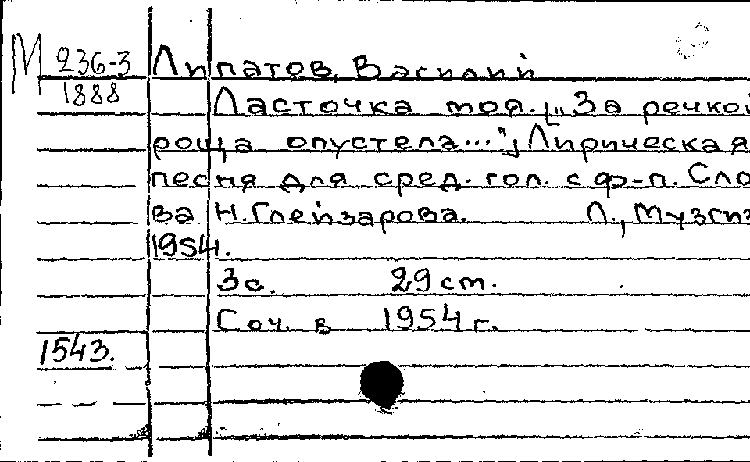 М 236-3
1888
Липатов, Василий
Ласточка моя. [„За речкой
роща опустела..."] Лирическая
песня для сред. гол. с ф-п. Сло
ва Н. Глейзарова. Л., Музгиз
1954.
3 с. 29 ст.
Соч. в 1954 г.
1543.